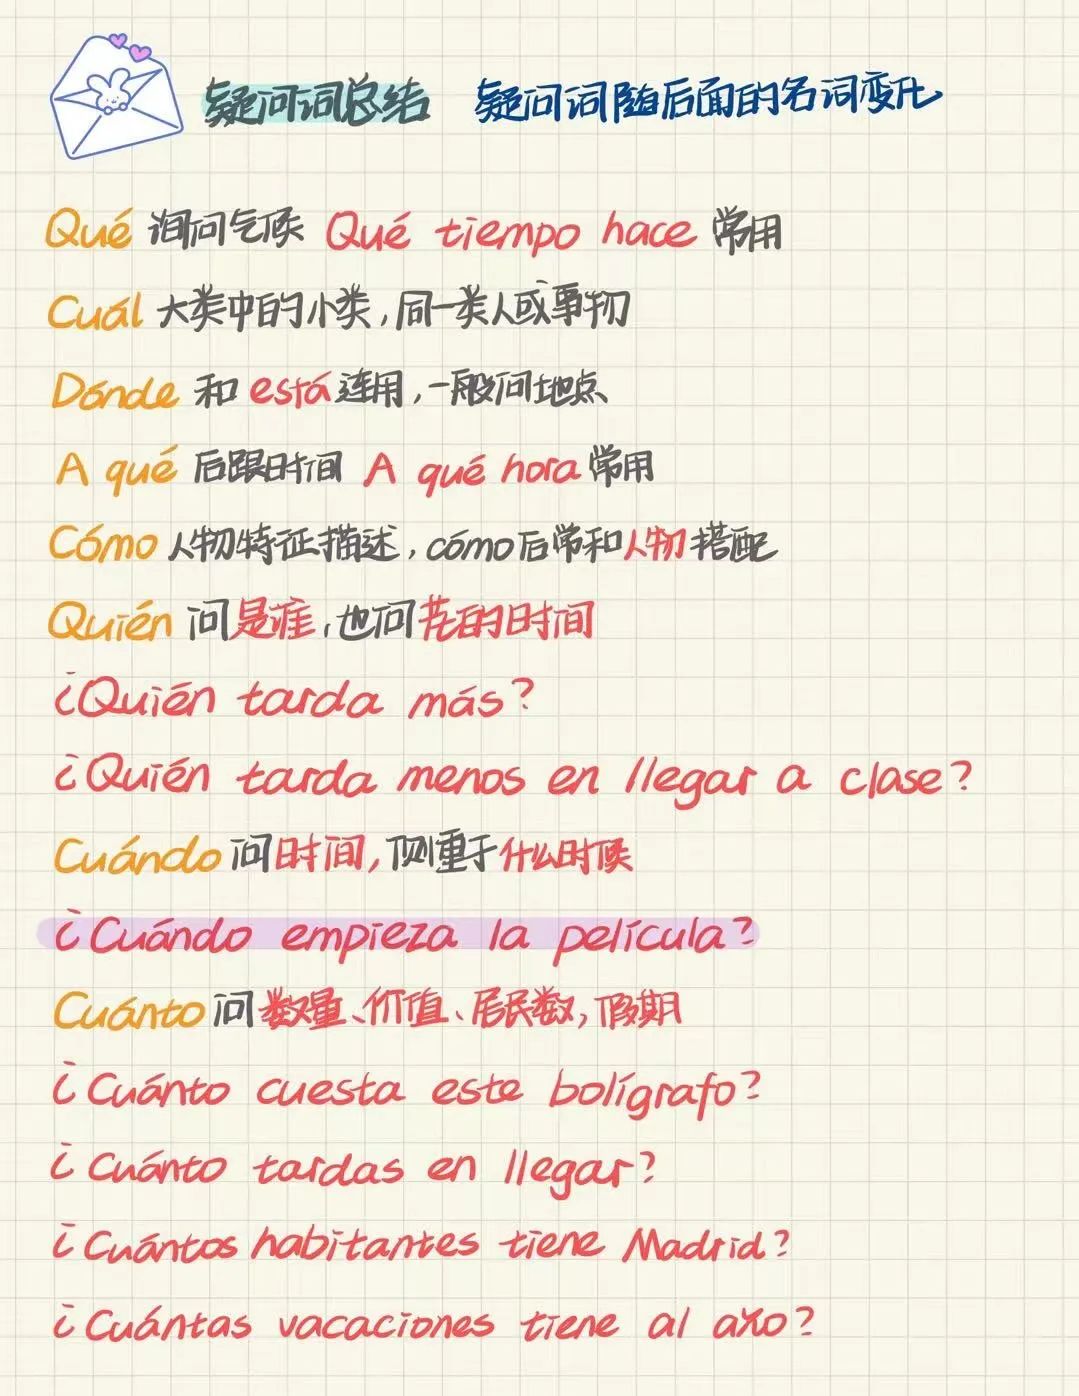 疑问词总结 疑问词随后面的名词变化
Qué 询问气候 Qué tiempo hace 常用
Cuál 大类中的小类,同一类人或事物
Dónde 和 está 连用,一般问地点
A qué 后跟时间 A qué hora 常用
Cómo 人物特征描述,cómo后常和人物搭配
Quién 问是谁,也问花的时间
¿Quién tarda más?
¿Quién tarda menos en llegar a clase?
Cuándo 问时间,侧重于什么时候
¿Cuándo empieza la película?
Cuánto 问数量、价值、居民数,假期
¿Cuánto cuesta este bolígrafo?
¿Cuánto tardas en llegar?
¿Cuántos habitantes tiene Madrid?
¿Cuántas vacaciones tiene al año?